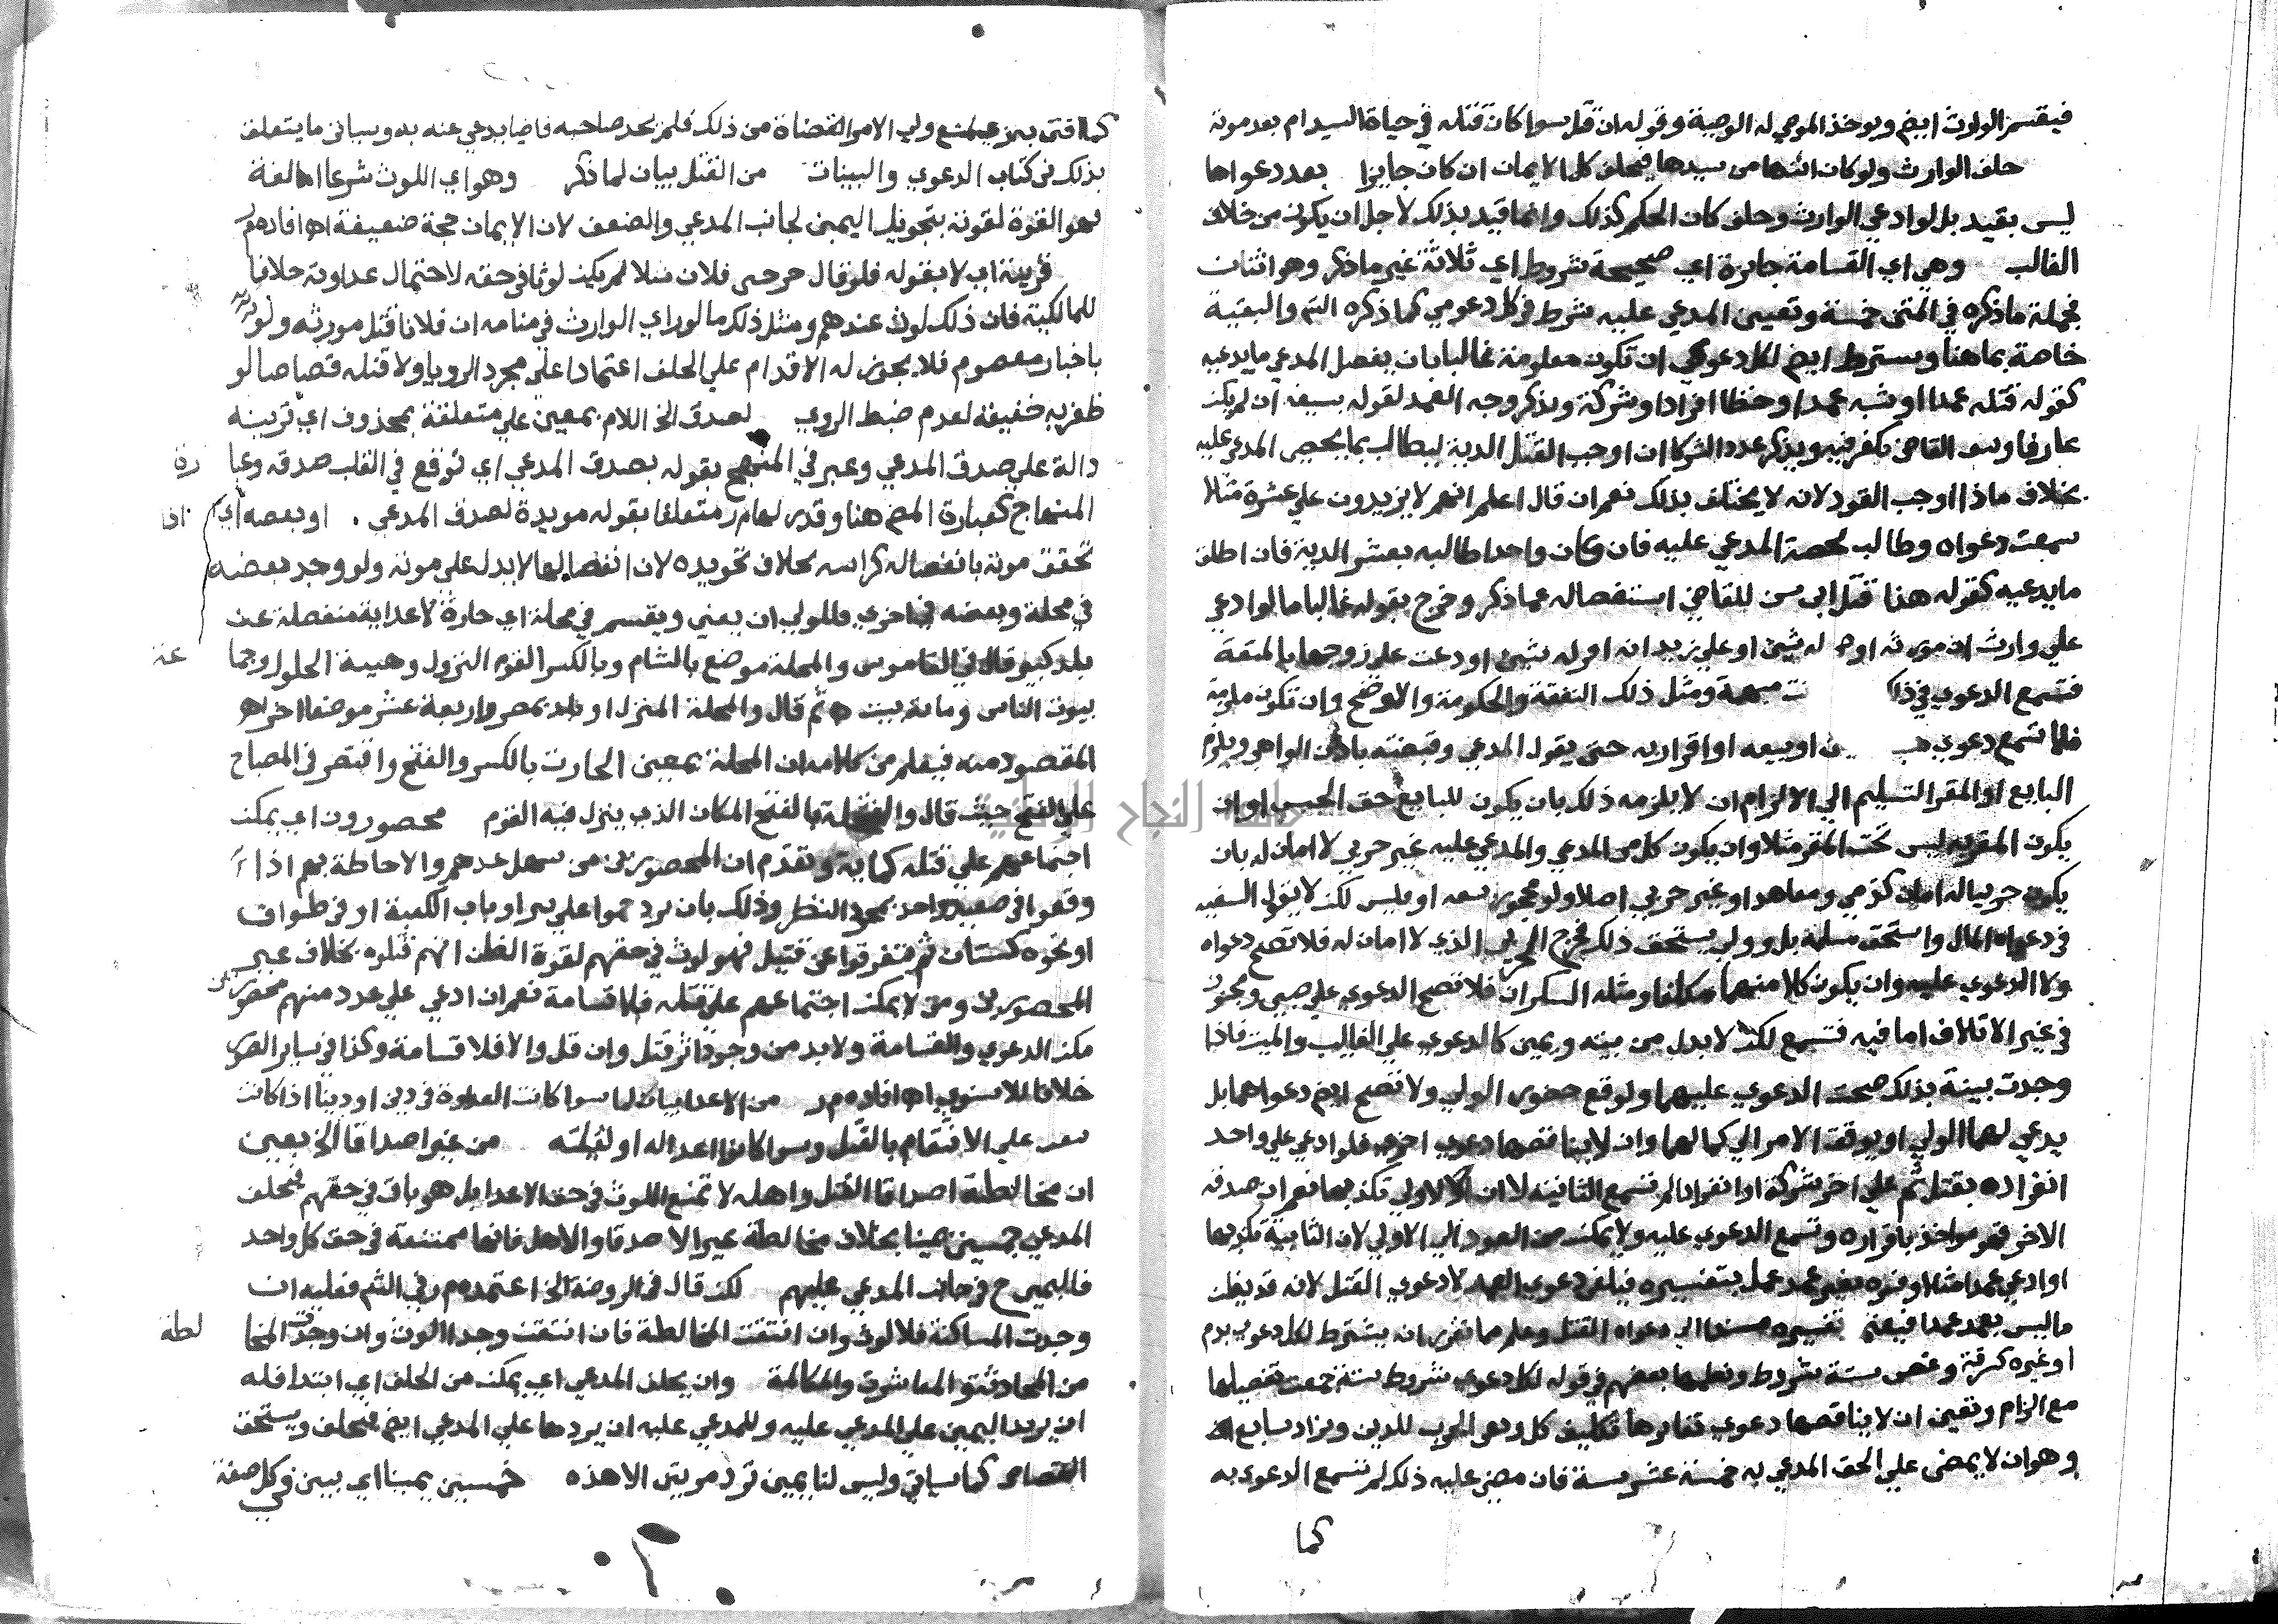 فيقسم الوارث ايضا ويوخذ الموصي له الوصية وقوله ان قتل سوا كان قتله في حياة السيد ام بعد موته
حلف الوارث ولو كان من سيدها فيحلف كل الايمان ان كان جايزا بعد دعواها
ليس بقيد بل لو ادعي الوارث وحلف كان الحكم كذلك وانما قيد بذلك لاجل ان يكون من خلاف
الغالب وهي اي القسامة جايزة اي صحيحة بشروط اي ثلاثة غير ما ذكر وهو اثنان
فجملة ما ذكره في المتن خمسة وتعيين المدعي عليه شرط في كل دعوي كما ذكره الش والبقية
خاصة بما هنا ويشترط ايض لكل دعوي ان تكون معلومة غالبا بان يفصل المدعي ما يدعيه
كقوله قتله عمدا او شبه عمد او خطا افرادا او شركة ويذكر وجه العمد لقوله ان لم يكن
عارفا القاضي ويذكر عدد الشركا ان اوجب القتل الدية ليطالب بما يخص المدعي عليه
بخلاف ما اذا اوجب القود لانه لا يختلف بذلك نعم ان قال اعلم انهم لا يزيدون علي عشرة مثلا
سمعت دعواه وطالب بحصة المدعي عليه فان كان واحدا طالبه بعشر الدية فان اطلق
ما يدعيه كقوله هذا قتل ابي سن للقاضي استفصاله عما ذكر وخرج بقوله غالبا ما لو ادعي
علي وارث ان مورثه اوصي له بشي او علي زيد انه اقر له بشي او دعت علي زوجها بالمتعة
فتسمع الدعوي في ذلك ومثل ذلك النفقة والحكومة والاوضح وان تكون ملزمة
فلا تسمع دعوي او بيعه او اقرار به حتي يقول المدعي وقبضته باذن الواهب ويلزم
البايع او المقر التسليم الي الالزام ان لا يلزمه ذلك بان يكون للبايع حق الحبس او ان
يكون المقر به ليس تحت المقر مثلا وان يكون كل من المدعي والمدعي عليه غير حربي لا امان له بان
يكون حربيا له امان كذمي ومعاهد او غير حربي اصلا ولو محجور سفه او فلس لكن لا يقول السفيه
في دعواه المال واستحق تسلمه بل وولي يستحق ذلك فخرج الحربي الذي لا امان له فلا تصح دعواه
ولا الدعوي عليه وان يكون كلا منهما مكلفا ومثله السكران فلا تصح الدعوي علي صبي ومجنون
في غير الاتلاف اما فيه فتسمع لكن لا بد من بينة ويمين كالدعوي علي الغايب والميت فاذا
وجدت بينة بذلك صحت الدعوي عليهما ولو مع حضور الولي ولا تصح ايض دعواهما بل
يدعي لهما الولي او يوقف الامر الي كمالهما وان لا يناقضها دعوي اخري فلو ادعي علي واحد
انفراده بقتل ثم علي اخر شركة او انفرادا لم تسمع الثانية لان الاولي تكذبها نعم ان صدقه
الاخر فهو مواخذ باقراره وتسمع الدعوي عليه ولا يمكن من العود الي الاولي لان الثانية تكذبها
او ادعي عمدا مثلا وفسره بغير عمد عمل بتفسيره فيلغي دعوي العمد لا دعوي القتل لانه قد يظن
ما ليس بعمد عمدا فيعتمد تفسيره مستندا الي دعواه القتل وعلم مما تقرر ان يشترط لكل دعوي بدم
او غيره كسرقة وغصب ستة شروط ونظمها بعضهم في قوله لكل دعوي شروط ستة جمعت تفصيلها
مع الزام وتعيين ان لا يناقضها دعوي تغايرها تكليف كل ونفي الحرب للدين ويزاد سابع
وهو ان لا يمضي علي الحق المدعي به خمسة عشر سنة فان مضي عليه ذلك لم تسمع الدعوي به
كما
كما افتي به لمنع ولي الامر القضاة من ذلك فلم يجد صاحبه قاضيا يدعي عنده به وسياتي ما يتعلق
بذلك في كتاب الدعوي والبينات من القتل بيان لما ذكر وهو اي اللوث شرعا اما لغة
فهو القوة لقوته بتحويل اليمين لجانب المدعي والضعف لان الايمان حجة ضعيفة اه افاده م ر
قرينة اي لا بقوله فلو قال جرحني فلان مثلا لم يكن لوثا في حقه لاحتمال عداوته خلافا
للمالكية فان ذلك لوث عندهم ومثل ذلك ما لو راي الوارث في منامه ان فلانا قتل مورثه ولو
باخبار معصوم فلا يجوز له الاقدام علي الحلف اعتمادا علي مجرد الرويا ولا قتله قصاصا لو
ظفر به خفيفة لعدم ضبط الروي لصدق الخ اللام بمعني علي متعلقة بمحذوف اي قرينة
دالة علي صدق المدعي وعبر في المنهج بقوله بصدق المدعي اي توقع في القلب صدقه وعبا رة
المنهاج كعبارة المص هنا وقدر لها م ر متعلقا بقوله مويدة لصدق المدعي . او بعضه اي اذا
تحقق موته بانفصاله كراسه بخلاف نحو يده لان انفصالها لا يدل علي موته ولو وجد بعضه
في محلة وبعضه في اخري فللولي ان يعين ويقسم في محلة اي حارة لاعدايه منفصلة عن
بلد كبير قال في القاموس والمحلة موضع بالشام وبالكسر القوم النزول وهيية الحلول وجما عة
بيوت الناس وماية بيت ثم قال والمحلة المنزل او بلد بمصر واربعة عشر موضعا اخر اه
المقصود منه فيعلم من كلامه ان المحلة بمعني الحارة بالكسر والفتح واقتصر في المصباح
علي الفتح حيث قال والمحلة بالفتح المكان الذي ينزل فيه القوم محصورون اي يمكن
اجتماعهم علي قتله كماية وتقدم ان المحصورين من سهل عدهم والاحاطة بهم اذا
وقفوا في صعيد واحد بمجرد النظر وذلك بان يزدحموا علي بير او باب الكعبة او في طواف
او نحوه كبستان ثم تفرقوا عن قتيل فهو لوث في حقهم لقوة الظن انهم قتلوه بخلاف غير
المحصورين ومن لا يمكن اجتماعهم علي قتله فلا قسامة نعم ان ادعي علي عدد منهم محصورين
مكن الدعوي والقسامة ولا بد من وجود اثر قتل وان قل والا فلا قسامة وكذا في ساير الصور
خلافا للاسنوي اه افاده م ر من الاعدا بيان لما سوا كانت العداوة في دين او دينا اذا كانت
علي الانتقام بالقتل وسوا كانوا اعدا له او لقبيلته من غير اصدقا الخ يعني
ان مخالطة اصدقا القتيل واهله لا تمنع اللوث في حق الاعدا بل هو باق في حقهم فيحلف
المدعي خمسين يمينا بخلاف مخالطة غير الاصدقا والاهل فانها ممتنعة في حق كل واحد
فاليمين ح في جانب المدعي عليهم لكن قال في الروضة الخ اعتمده م ر في الش فعليه ان
وجدت المساكنة فلا لوث وان انتفت المخالطة فان انتفت وجد اللوث وان وجدت المخا لطة
من المحادثة والمعاشرة والمكالمة وان يحلف المدعي اي يمكن من الحلف اي ابتدا فله
ان يرد اليمين علي المدعي عليه وللمدعي عليه ان يردها علي المدعي ايض فيحلف ويستحق
القصاص كما سياتي وليس لنا يمين ترد مرتين الا هذه خمسين يمينا اي يبين في كل صفة
جامعة النجاح الوطنية